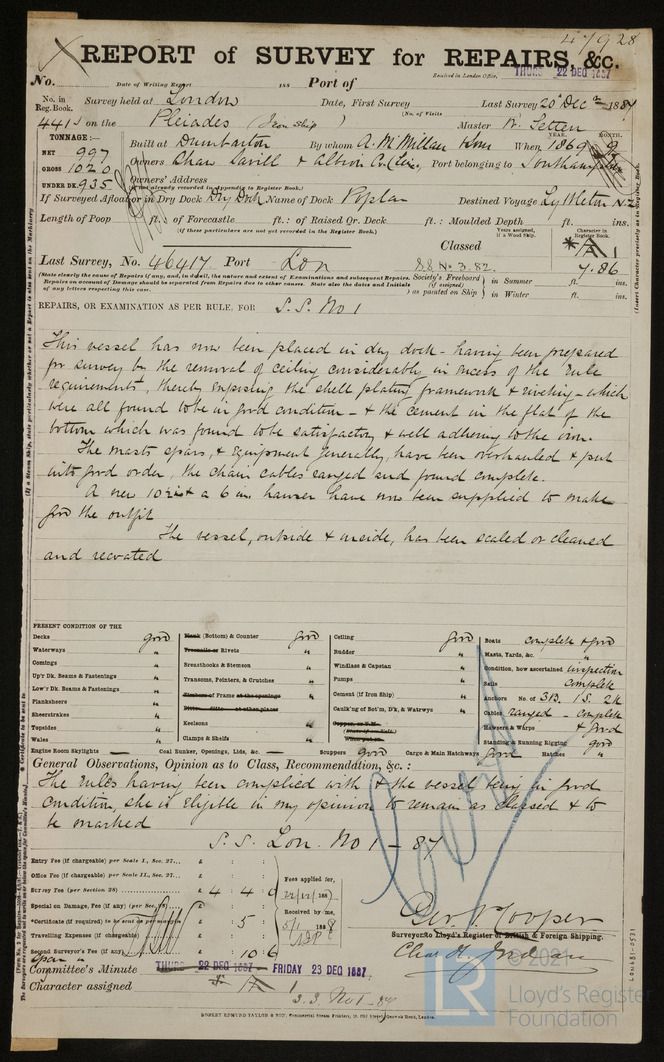 47928
REPORT of SURVEY for REPAIRS, &c.
No. Date of Writing Report 188 Port of Received in London Office, THURS 22 DEC 1887
No. in Reg. Book. Survey held at London Date, First Survey Last Survey 20th Dec 1887
(No. of Visits )
441 on the Pleiades (Iron Ship) Master W. Setten
TONNAGE:—
NET 997
GROSS 1020
UNDER DK. 935
Built at Dumbarton By whom A. McMillan & Son When YEAR. 1869 MONTH. 9
Owners Shaw Savill & Albion Co. (Lim. Port belonging to Southampton
Owners' Address
(If not already recorded in Appendix to Register Book.)
If Surveyed Afloat or in Dry Dock Dry Dock Name of Dock Poplar Destined Voyage Lyttleton N.Z.
Length of Poop ft.: of Forecastle ft.: of Raised Qr. Deck ft.: Moulded Depth ft. ins.
(If these particulars are not yet recorded in the Register Book.)
Classed
Years assigned, if a Wood Ship.
Character in Register Book.
A 1
7.86
Last Survey, No. 46417 Port Lon SS No 3. 82.
(State clearly the cause of Repairs if any, and, in detail, the nature and extent of Examinations and subsequent Repairs.
Repairs on account of Damage should be separated from Repairs due to other causes. State also the dates and Initials
of any letters respecting this case.
Society's Freeboard (if assigned) as painted on Ship } in Summer ft. ins.
in Winter ft. ins.
REPAIRS, OR EXAMINATION AS PER RULE, FOR S.S. No 1
This vessel has now been placed in dry dock – having been prepared
for survey by the removal of ceiling considerably in excess of the rule
requirements, thereby exposing the shell plating framework & riveting – which
were all found to be in good condition – & the cement in the flat of the
bottom which was found to be satisfactory & well adhering to the iron.
The masts spars, & equipment generally, have been overhauled & put
into good order, the chain cables ranged and found complete.
A new 10 in & a 6 in hawser have now been supplied to make
good the outfit
The vessel, outside & inside, has been scaled or cleaned
and recoated
PRESENT CONDITION OF THE
Decks good
Waterways "
Comings "
Up'r Dk. Beams & Fastenings "
Low'r Dk. Beams & Fastenings "
Planksheers "
Sheerstrakes "
Topsides "
Wales "
Plank (Bottom) & Counter good
Treenails or Rivets "
Breasthooks & Stemson "
Transoms, Pointers, & Crutches "
Timbers of Frame at the openings "
Ditto Ditto at other places
Keelsons "
Clamps & Shelfs "
Ceiling good
Rudder "
Windlass & Capstan "
Pumps "
Cement (if Iron Ship) "
Caulk'g of Bot'm, Dk, & Watrwys "
Boats complete & good
Masts, Yards, &c. "
Condition, how ascertained inspection
Sails complete
Anchors No. of 3B. 1S. 2K
Cables ranged – complete
Hawsers & Warps & good
Standing & Running Rigging good
Engine Room Skylights — Coal Bunker, Openings, Lids, &c. — Scuppers good Cargo & Main Hatchways good Hatches "
General Observations, Opinion as to Class, Recommendation, &c.:
The rules having been complied with & the vessel being in good
condition, she is eligible in my opinion to remain as classed & to
be marked
S. S. Lon. No 1 – 87
Entry Fee (if chargeable) per Scale I., Sec. 27... £ : :
Office Fee (if chargeable) per Scale II., Sec. 27... £ : :
Survey Fee (per Section 28) £ 4 : 4 : 0
Special on Damage, Fee (if any) (per Sec. 28) £ : :
*Certificate (if required) to be sent as per margin £ : 5 :
Travelling Expenses (if chargeable) £ : :
Second Surveyor's Fee (if any) £ : 10 : 6
Fees applied for,
22/12/1887
Received by me,
5/1/1888
Geo. J. Cooper
Surveyor to Lloyd's Register of British & Foreign Shipping.
Committee's Minute THURS 22 DEC 1887 FRIDAY 23 DEC 1887
Character assigned A 1
S.S. No 1 – 87
ROBERT EDMUND TAYLOR & SON, Commercial Steam Printers, 19, Old Street, Goswell Road, London.
LON681-0531
© 2021
LR
Lloyd's Register
Foundation